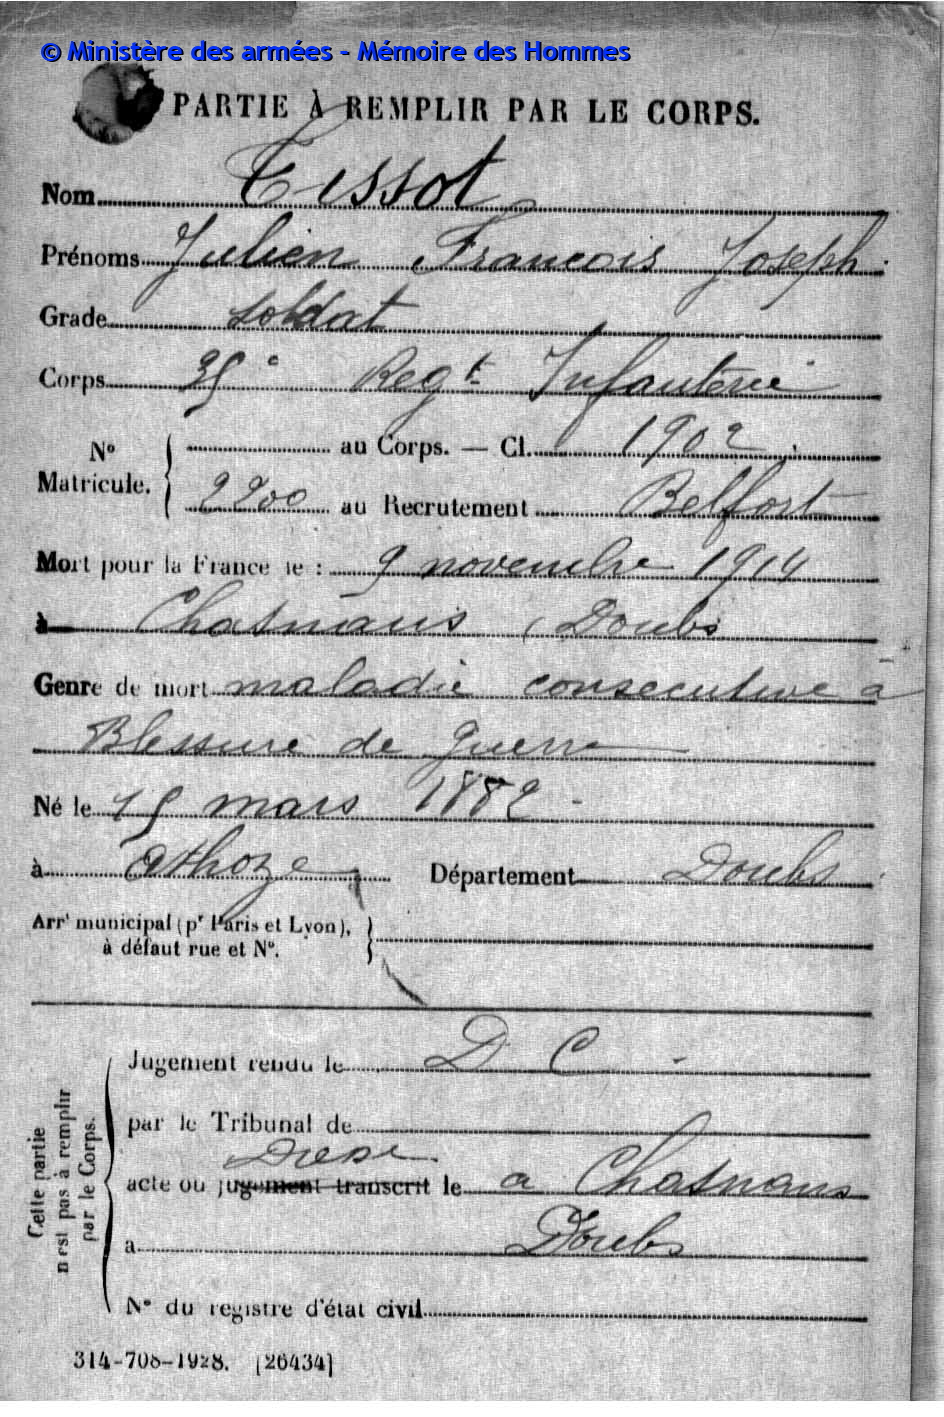 © Ministère des armées - Mémoire des Hommes
PARTIE À REMPLIR PAR LE CORPS.
Nom Tissot
Prénoms Julien Francois Joseph
Grade soldat
Corps 35e Regt Infanterie
No Matricule. { au Corps. — Cl. 1902
2200 au Recrutement Belfort
Mort pour la France le : 9 novembre 1914
à Chasnans (Doubs
Genre de mort maladie consecutive à
Blessure de guerre
Né le 15 mars 1882
à Athoze Département Doubs
Arrt municipal (pr Paris et Lyon),
à défaut rue et No. }
Cette partie n'est pas à remplir par le Corps. {
Jugement rendu le D C
par le Tribunal de
Dressé
acte ou jugement transcrit le a Chasnans
à Doubs
No du registre d'état civil
314-708-1928. [26434]